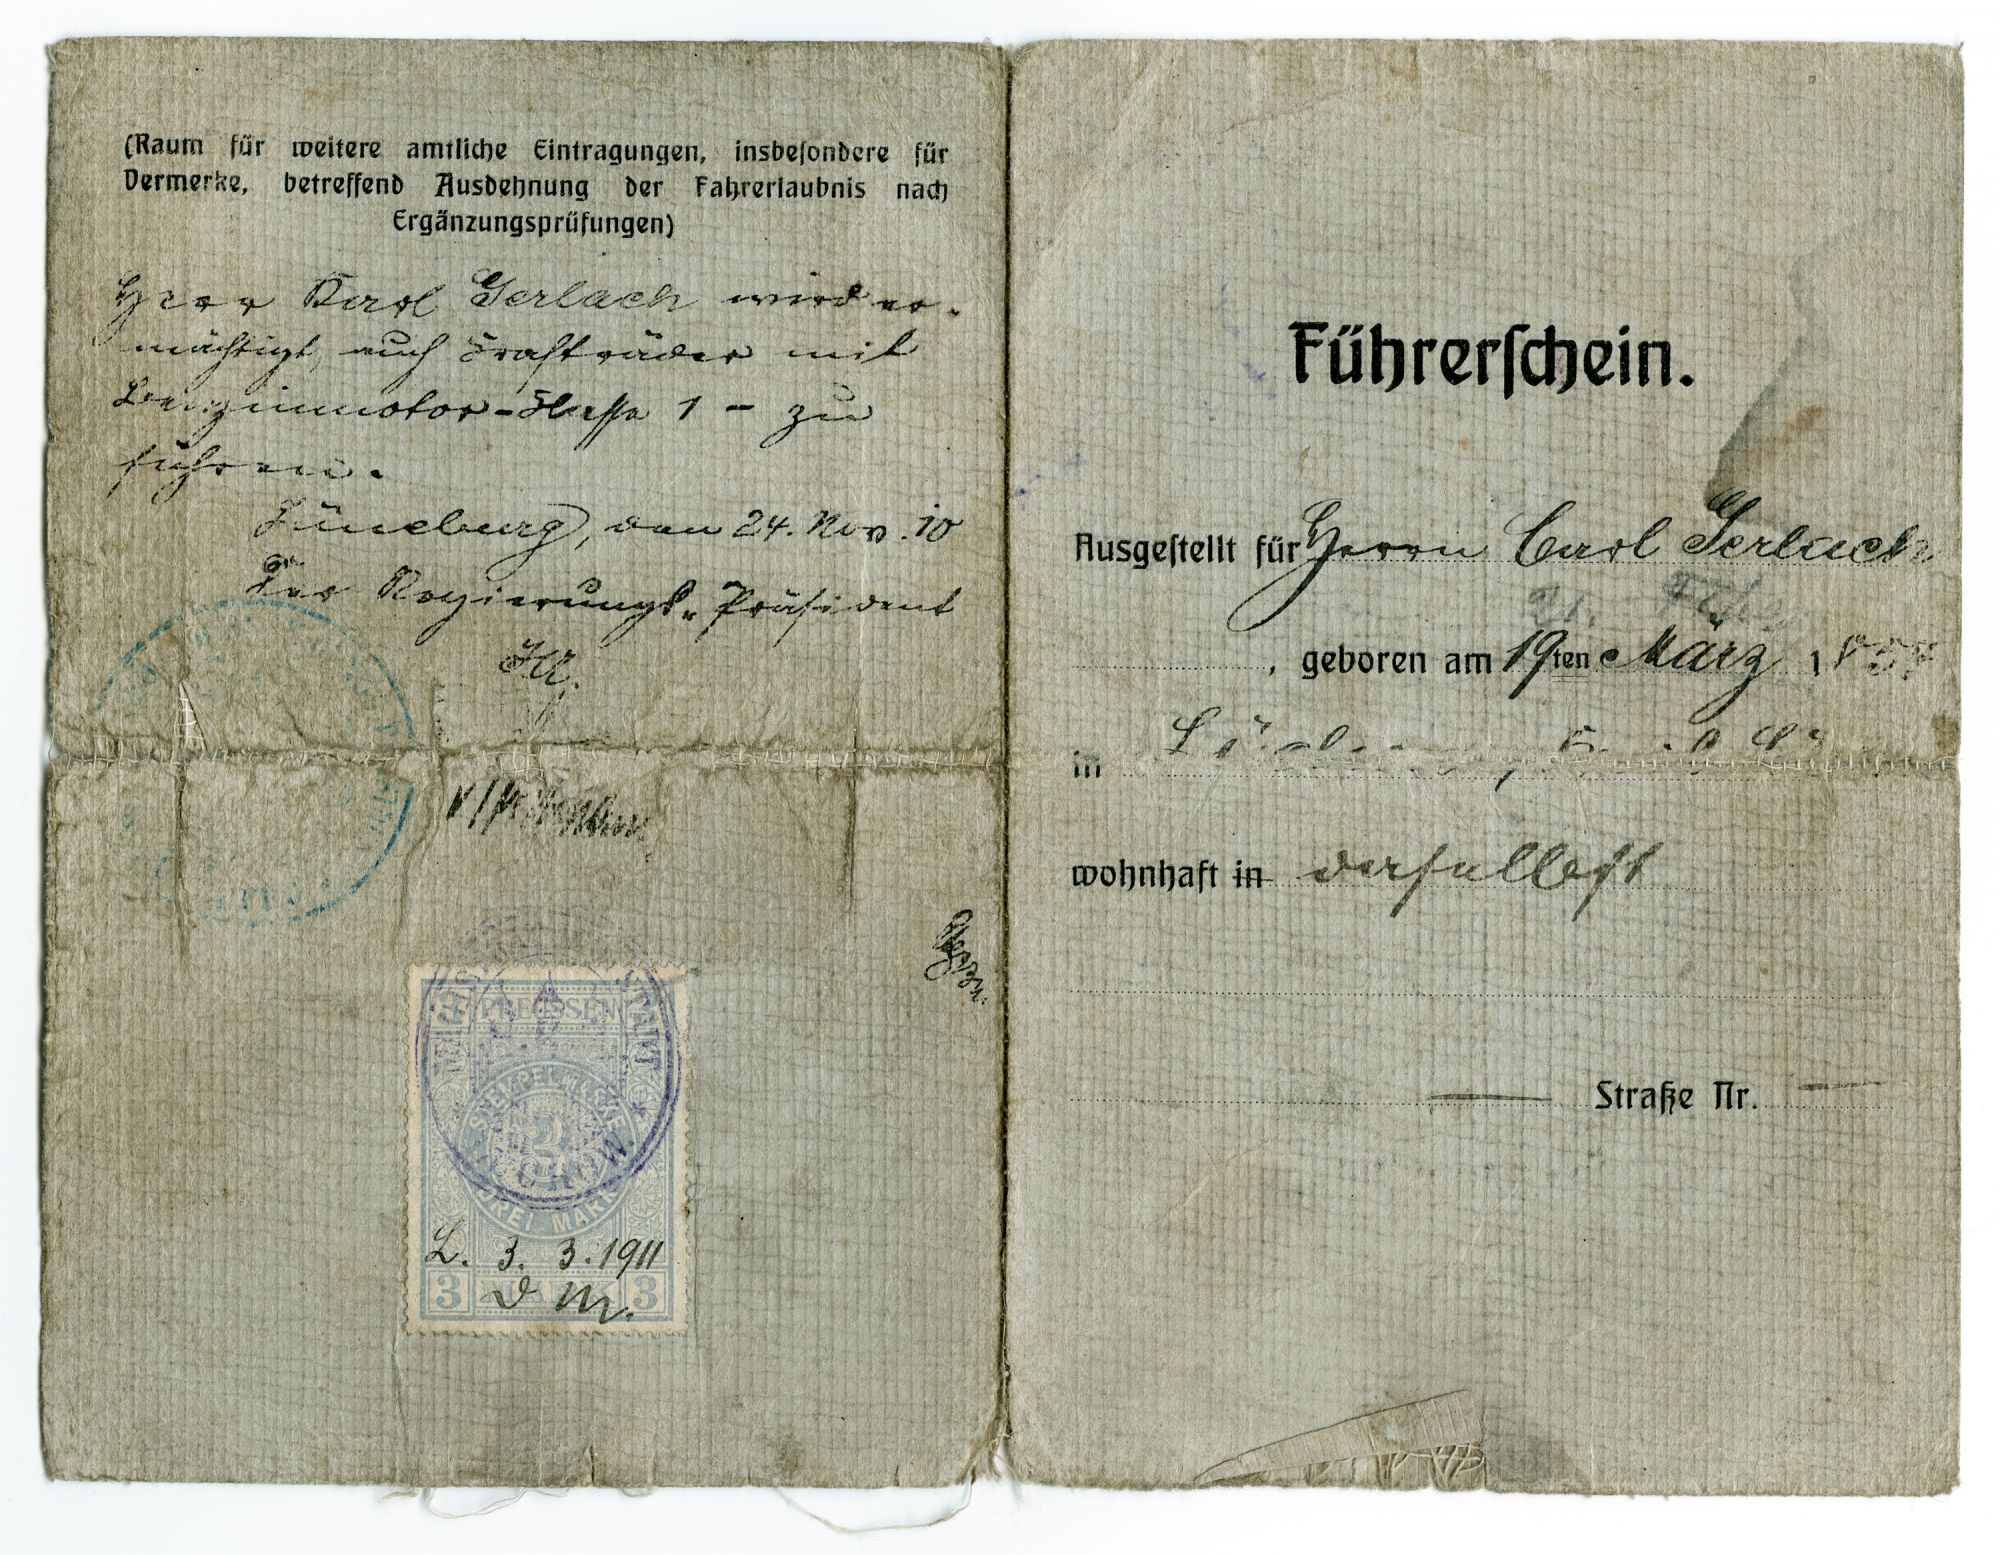 (Raum für weitere amtliche Eintragungen, insbesondere für
Vermerke, betreffend Ausdehnung der Fahrerlaubnis nach
Ergänzungsprüfungen)
Herr Karl Gerlach wird er-
mächtigt, auch Krafträder mit
Benzinmotor - Klasse 1 - zu
führen.
Lüneburg, den 24. Nov. 10
Der Regierungs-Präsident
PREUSSEN
STEMPELMARKE
3
DREI MARK
L. 3. 3. 1911
3 MARK 3
D M.
Führerschein.
Ausgestellt für Herrn Carl Gerlach
21.
, geboren am 19ten März 18
in
wohnhaft in daselbst
Straße Nr.